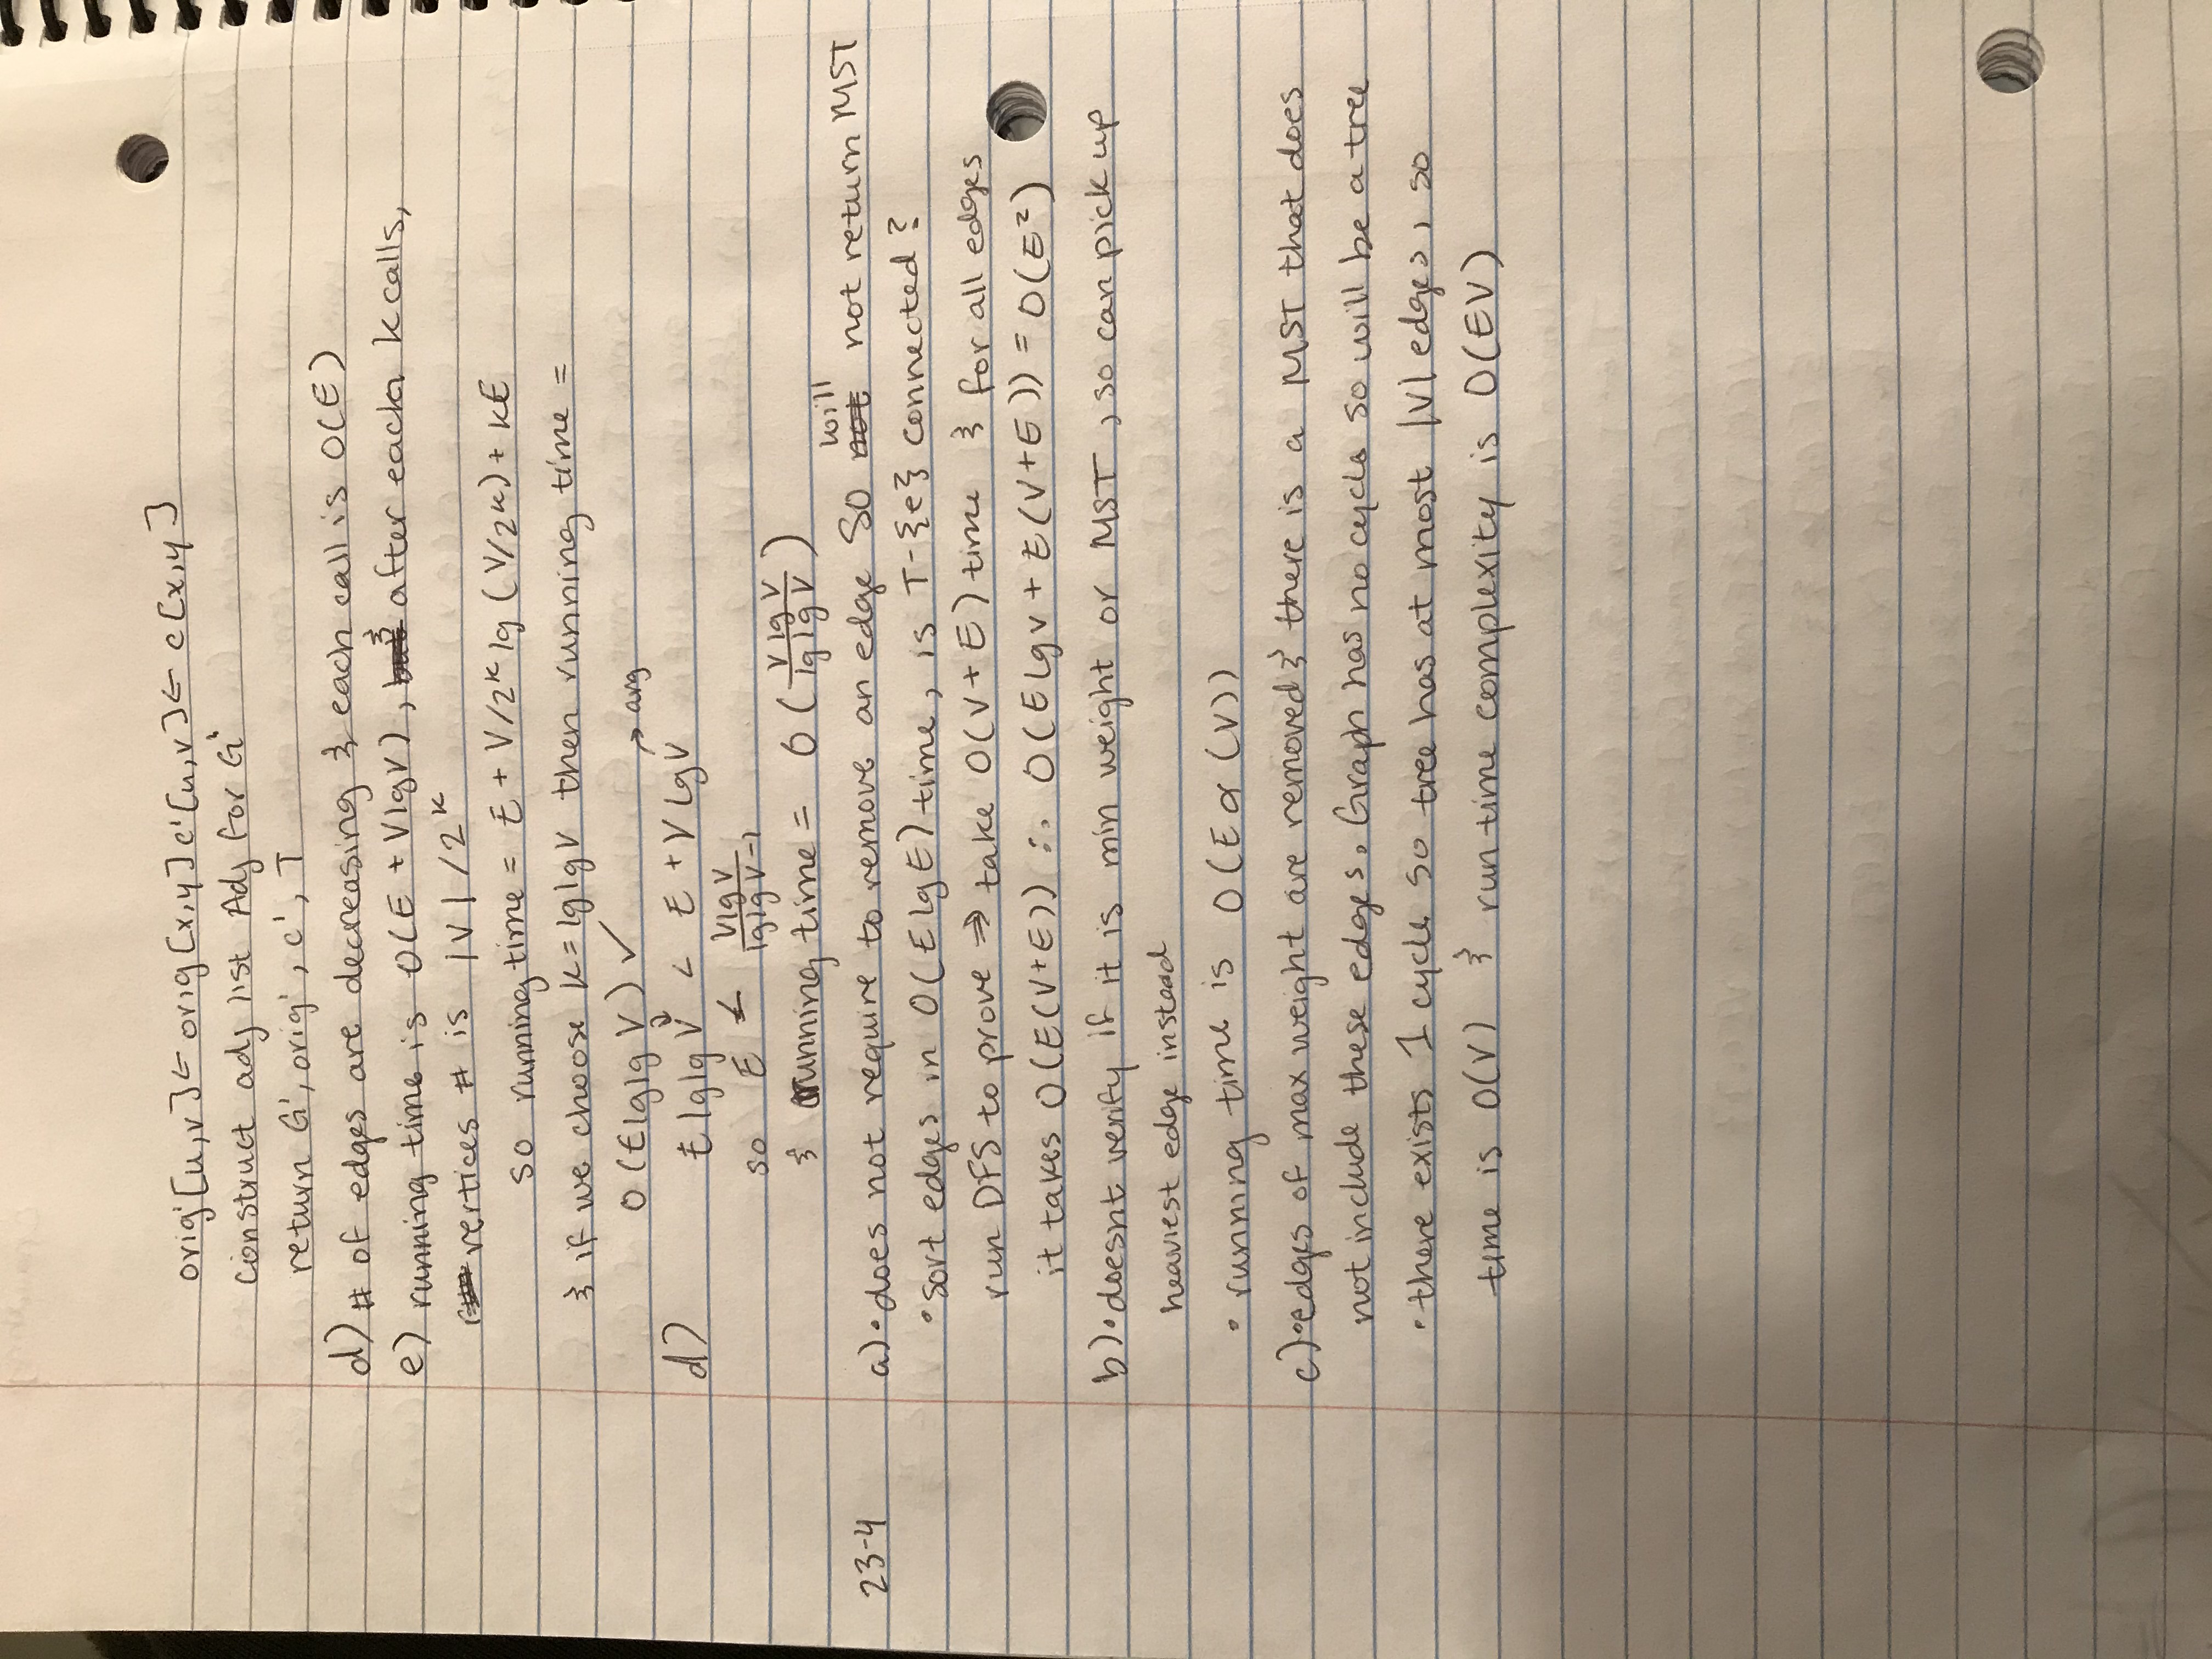 orig'[u,v] ← orig[x,y] c'[u,v] ← c[x,y]
construct adj list Adj for G'
return G', orig', c', T
d) # of edges are decreasing & each call is O(E)
e) running time is O(E + VlgV), & after each k calls,
vertices # is |V| / 2^k
so running time = E + V/2^k lg(V/2^k) + kE
& if we choose k = lglgV then running time =
O(E lglg V) ✓
→ arg
d) E lglg V < E + V lg V
so E < VlgV / lglgV-1
& running time = O( VlgV / lglgV )
23-4 a) • does not require to remove an edge so will not return MST
• sort edges in O(E lg E) time, is T-{e} connected?
run DFS to prove ⇒ take O(V+E) time & for all edges
it takes O(E(V+E)) ∴ O(E lgV + E(V+E)) = O(E²)
b) • doesnt verify if it is min weight or MST, so can pick up
heaviest edge instead
• running time is O(Eα(V))
c) • edges of max weight are removed & there is a MST that does
not include these edges. Graph has no cycle so will be a tree
• there exists 1 cycle so tree has at most |V| edges, so
time is O(V) & run-time complexity is O(EV)